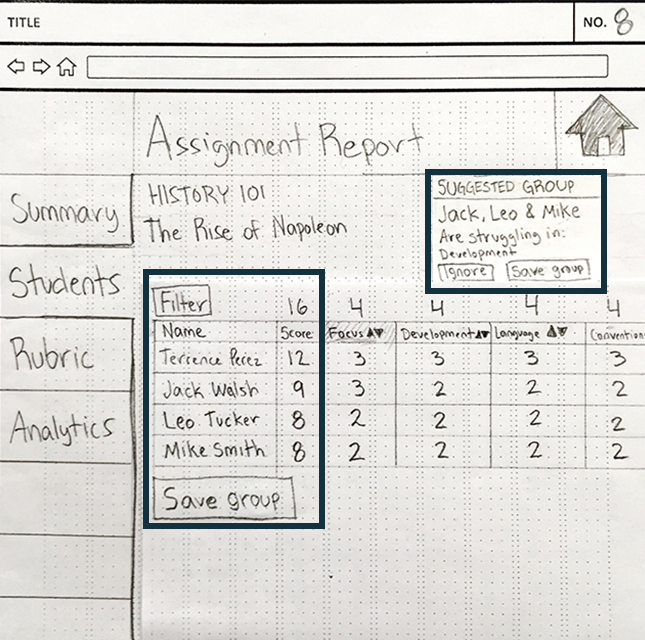 TITLE
NO. 8
Assignment Report
Summary
Students
Rubric
Analytics
HISTORY 101
The Rise of Napoleon
SUGGESTED GROUP
Jack, Leo & Mike
Are struggling in:
Development
Ignore Save group
Filter 16 4 4 4 4
Name Score Focus ▲▼ Development ▲▼ Language ▲▼ Convention
Terrence Perez 12 3 3 3 3
Jack Walsh 9 3 2 2 2
Leo Tucker 8 2 2 2 2
Mike Smith 8 2 2 2 2
Save group